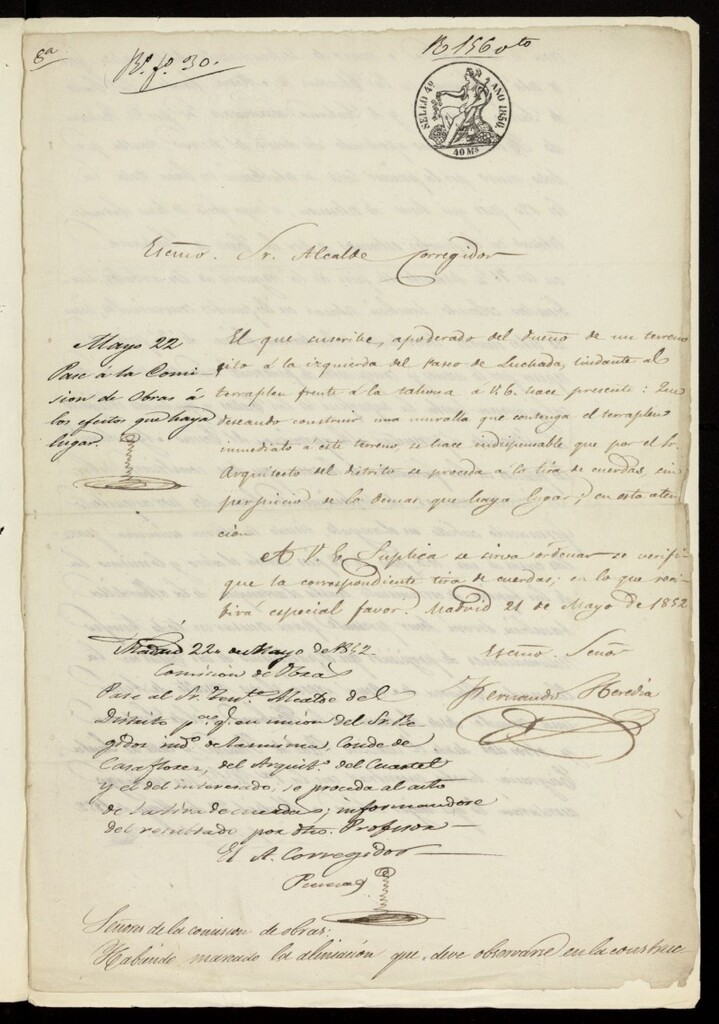 8ª
Rº fº 30.
R 156 oto
SELLO 4º AÑO 1850.
40 Ms
Escmo. Sr. Alcalde Corregidor
Mayo 22
Pase á la Comi-
sion de Obras á
los efectos que haya
lugar.
El que suscribe, apoderado del dueño de un terreno
sito á la izquierda del Paseo de Luchada, lindante al
terraplen frente á la tahona á V.E. hace presente: Que
deseando construir una muralla que contenga el terraplen
inmediato á este terreno, se hace indispensable que por el Sr.
Arquitecto del distrito se proceda á la tira de cuerdas, sin
perjuicio de lo demas que haya lugar; en esta aten-
cion
A V. E. Suplica se sirva ordenar se verifi-
que la correspondiente tira de cuerdas; en lo que reci-
birá especial favor. Madrid 21 de Mayo de 1852
Escmo. Señor
Fernando Heredia
Madrid 22 de Mayo de 1852.
Comision de Obras
Pase al Sr. Tente. Alcalde del
Distrito pª q. en union del Sr. Re-
gidor indº de la misma, Conde de
Casaflores, del Arquitº del Cuartel
y el del interesado, se proceda al acto
de la tira de cuerdas; informandose
del resultado por dho. Profesor
El A. Corregidor
Señores de la comision de obras:
Habiendo marcado la alineación que deve observarse en la construc